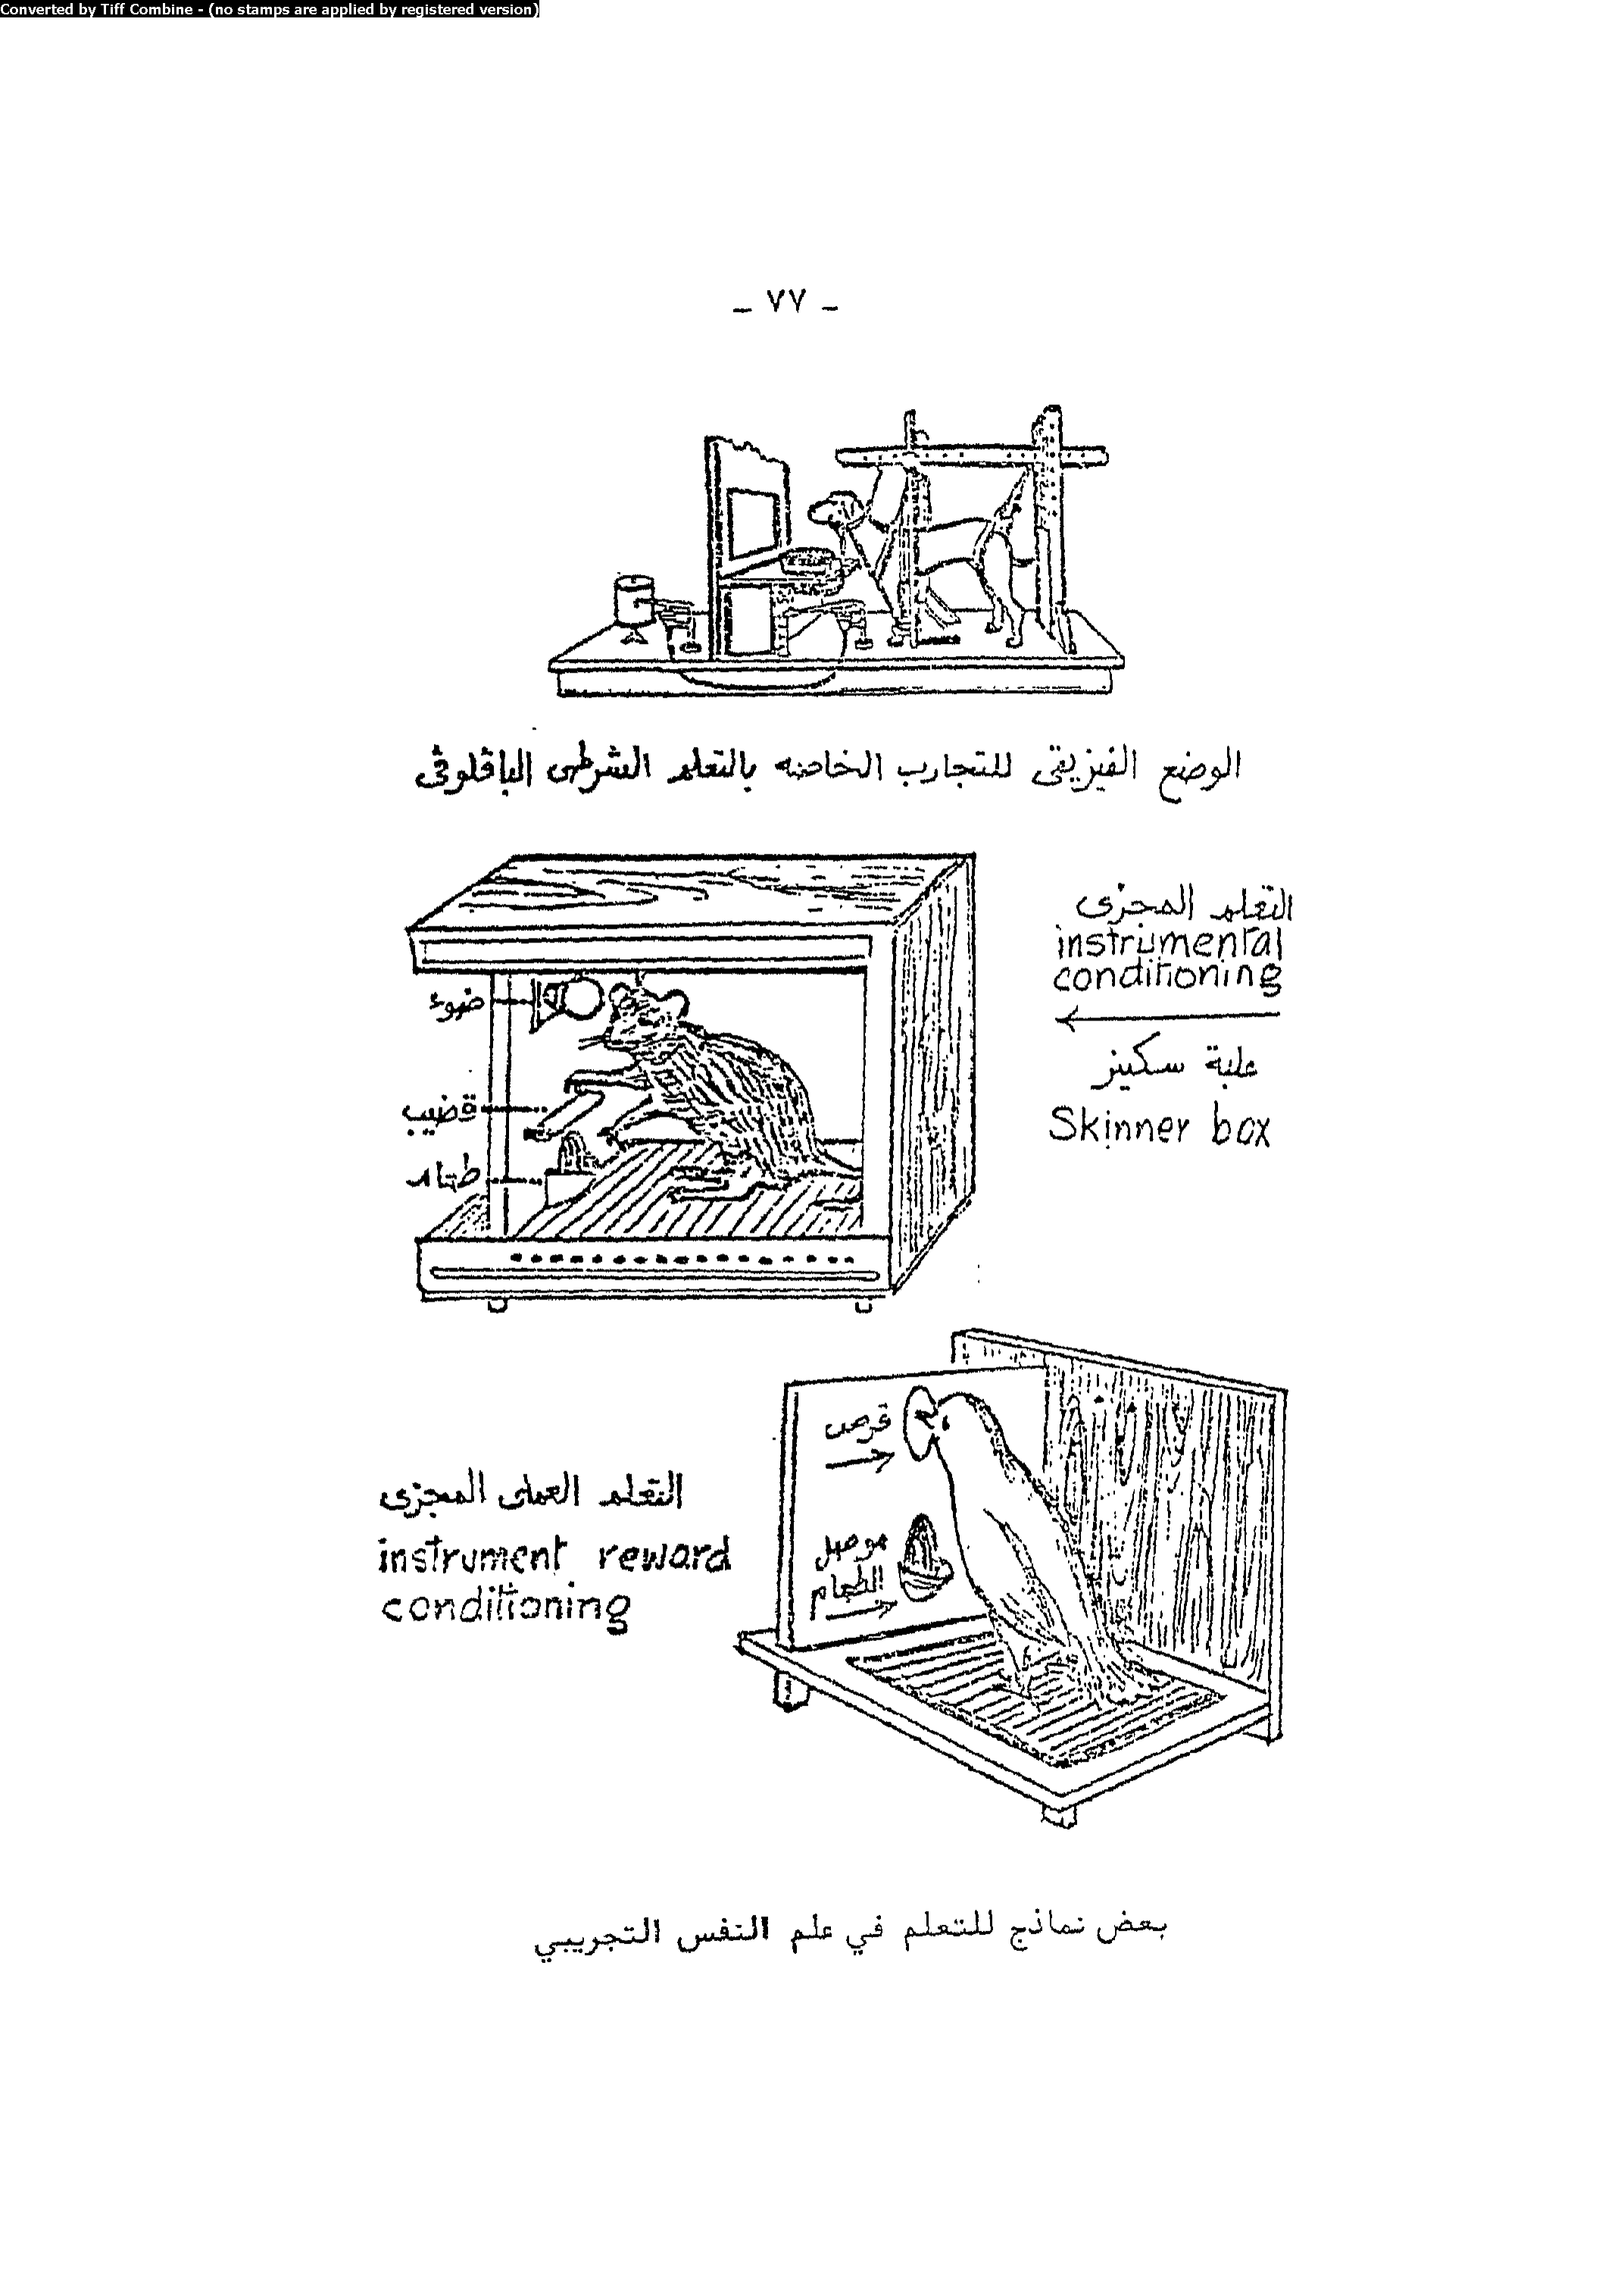 Converted by Tiff Combine - (no stamps are applied by registered version)
_ ٧٧ _
الوضع الفيزيقى للتجارب الخاصه بالتعلم الشرطى الباڤلوڤى
التعلم المجزى
instrumental
conditioning
علبة سكينر
Skinner box
ضوء
قضيب
طعام
قرص
موصل
الطعام
التعلم العملى المجزى
instrument reward
conditioning
بعض نماذج للتعلم في علم النفس التجريبي